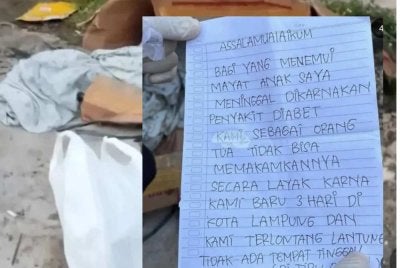 ASSALAMUALAIKUM
BAGI YANG MENEMUI
MAYAT ANAK SAYA
MENINGGAL DIKARNAKAN
PENYAKIT DIABET
KAMI SEBAGAI ORANG
TUA TIDAK BISA
MEMAKAMKANNYA
SECARA LAYAK KARNA
KAMI BARU 3 HARI DI
KOTA LAMPUNG DAN
KAMI TERLONTANG LANTUNG
TIDAK ADA TEMPAT TINGGAL